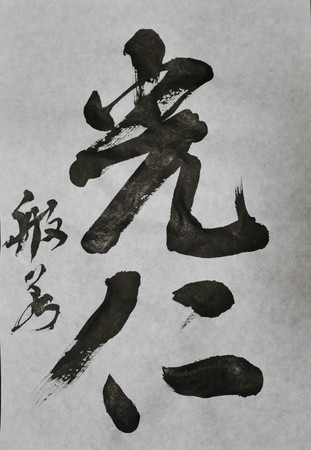 光仁
般若